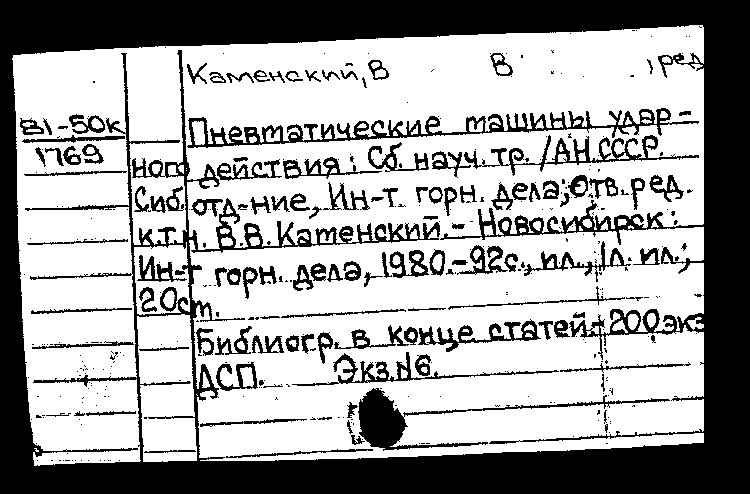 Каменский, В В , ред
81-50к
1769
Пневматические машины удар-
ного действия: Сб. науч. тр. /АН.СССР.
Сиб. отд-ние, Ин-т горн. дела; Отв. ред.
к.т.н. В.В. Каменский. - Новосибирск:
Ин-т горн. дела, 1980.-92с., ил., 1л. ил.;
20ст.
Библиогр. в конце статей.- 200 экз
ДСП. Экз.№6.